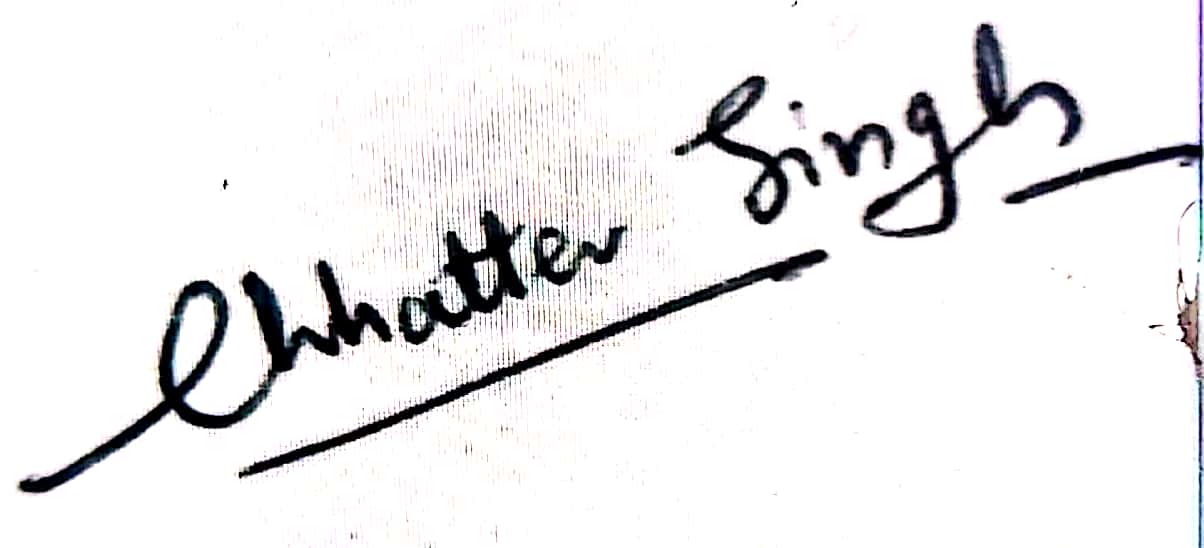 Chhatter Singh